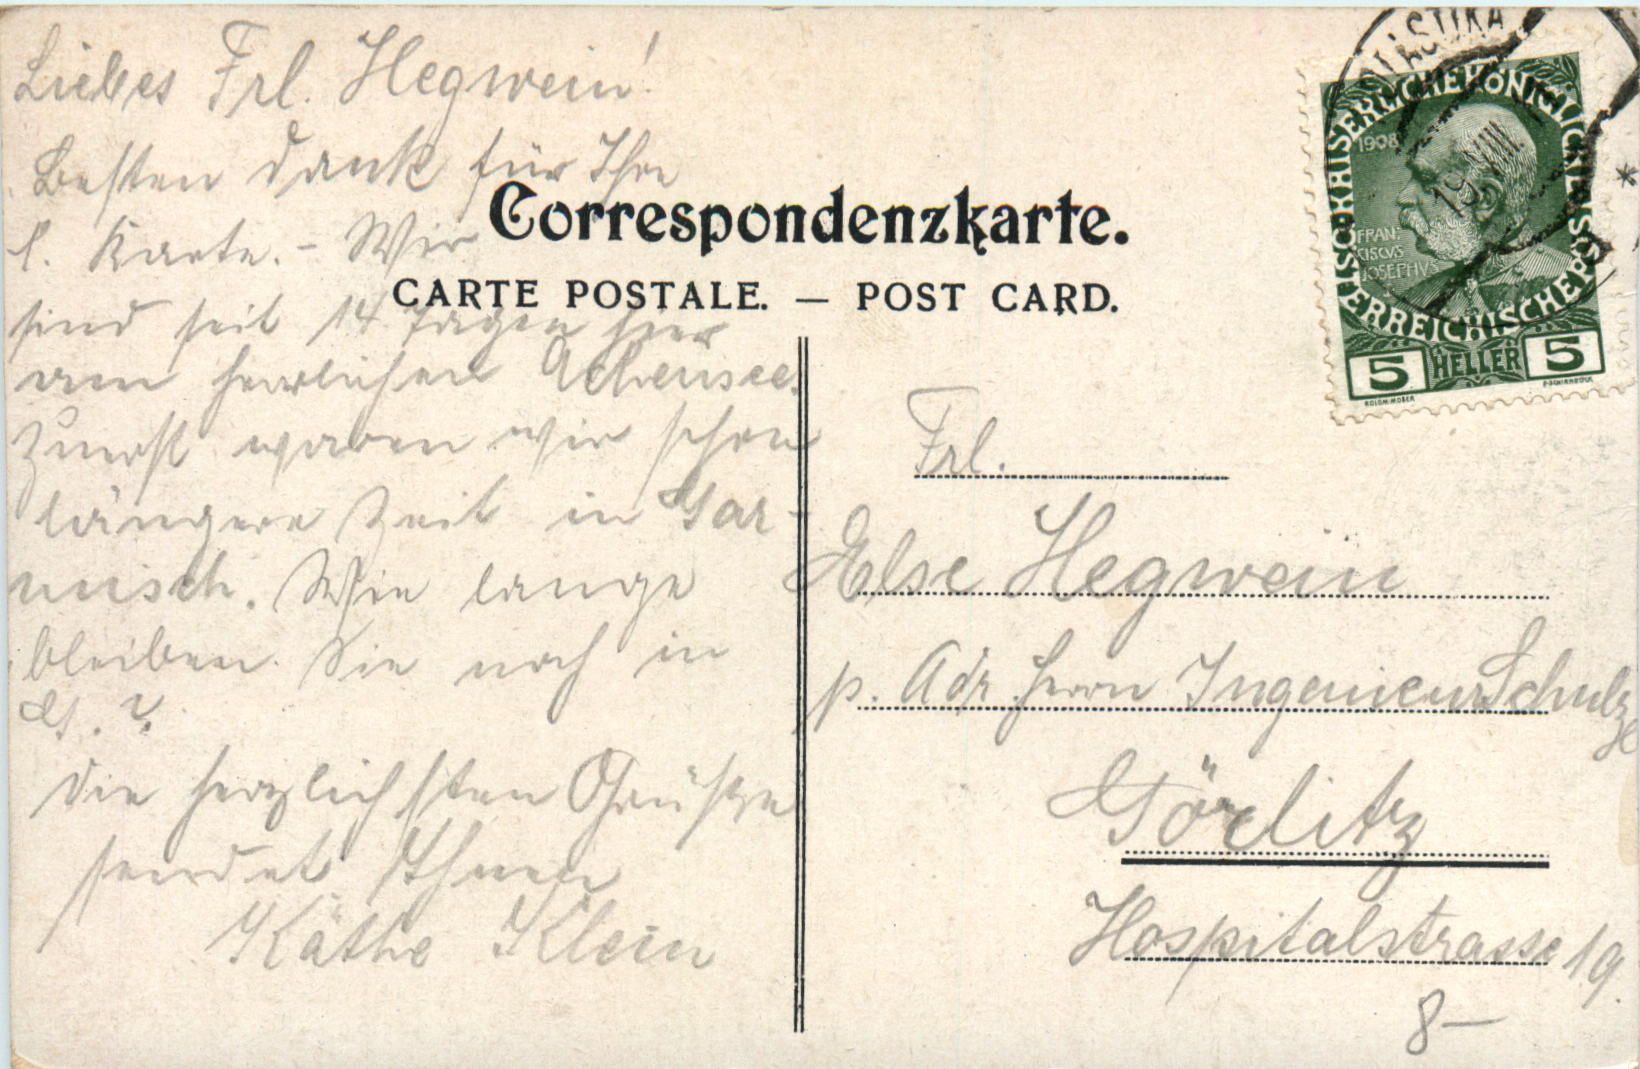 Liebes Frl. Hegwein!
Besten Dank für Ihre
l. Karte. – Wir
sind seit 14 Tagen hier
am herrlichen Achensee.
Zuerst waren wir schon
längere Zeit in Gar-
misch. Wie lange
bleiben Sie noch in
G.?
Die herzlichsten Grüße
sendet Ihnen
Käthe Klein
Correspondenzkarte.
CARTE POSTALE. — POST CARD.
SCHOLASTIKA
19. VIII.
KAISERLICHE KÖNIGLICHE ÖSTERREICHISCHE POST
1908
FRAN:
CISCVS
JOSEPHVS
5 HELLER 5
KOLOM. MOSER
F. SCHIRNBÖCK
Frl.
Else Hegwein
p. Adr. Herrn Ingenieur Schulze
Görlitz
Hospitalstrasse 19.
8–